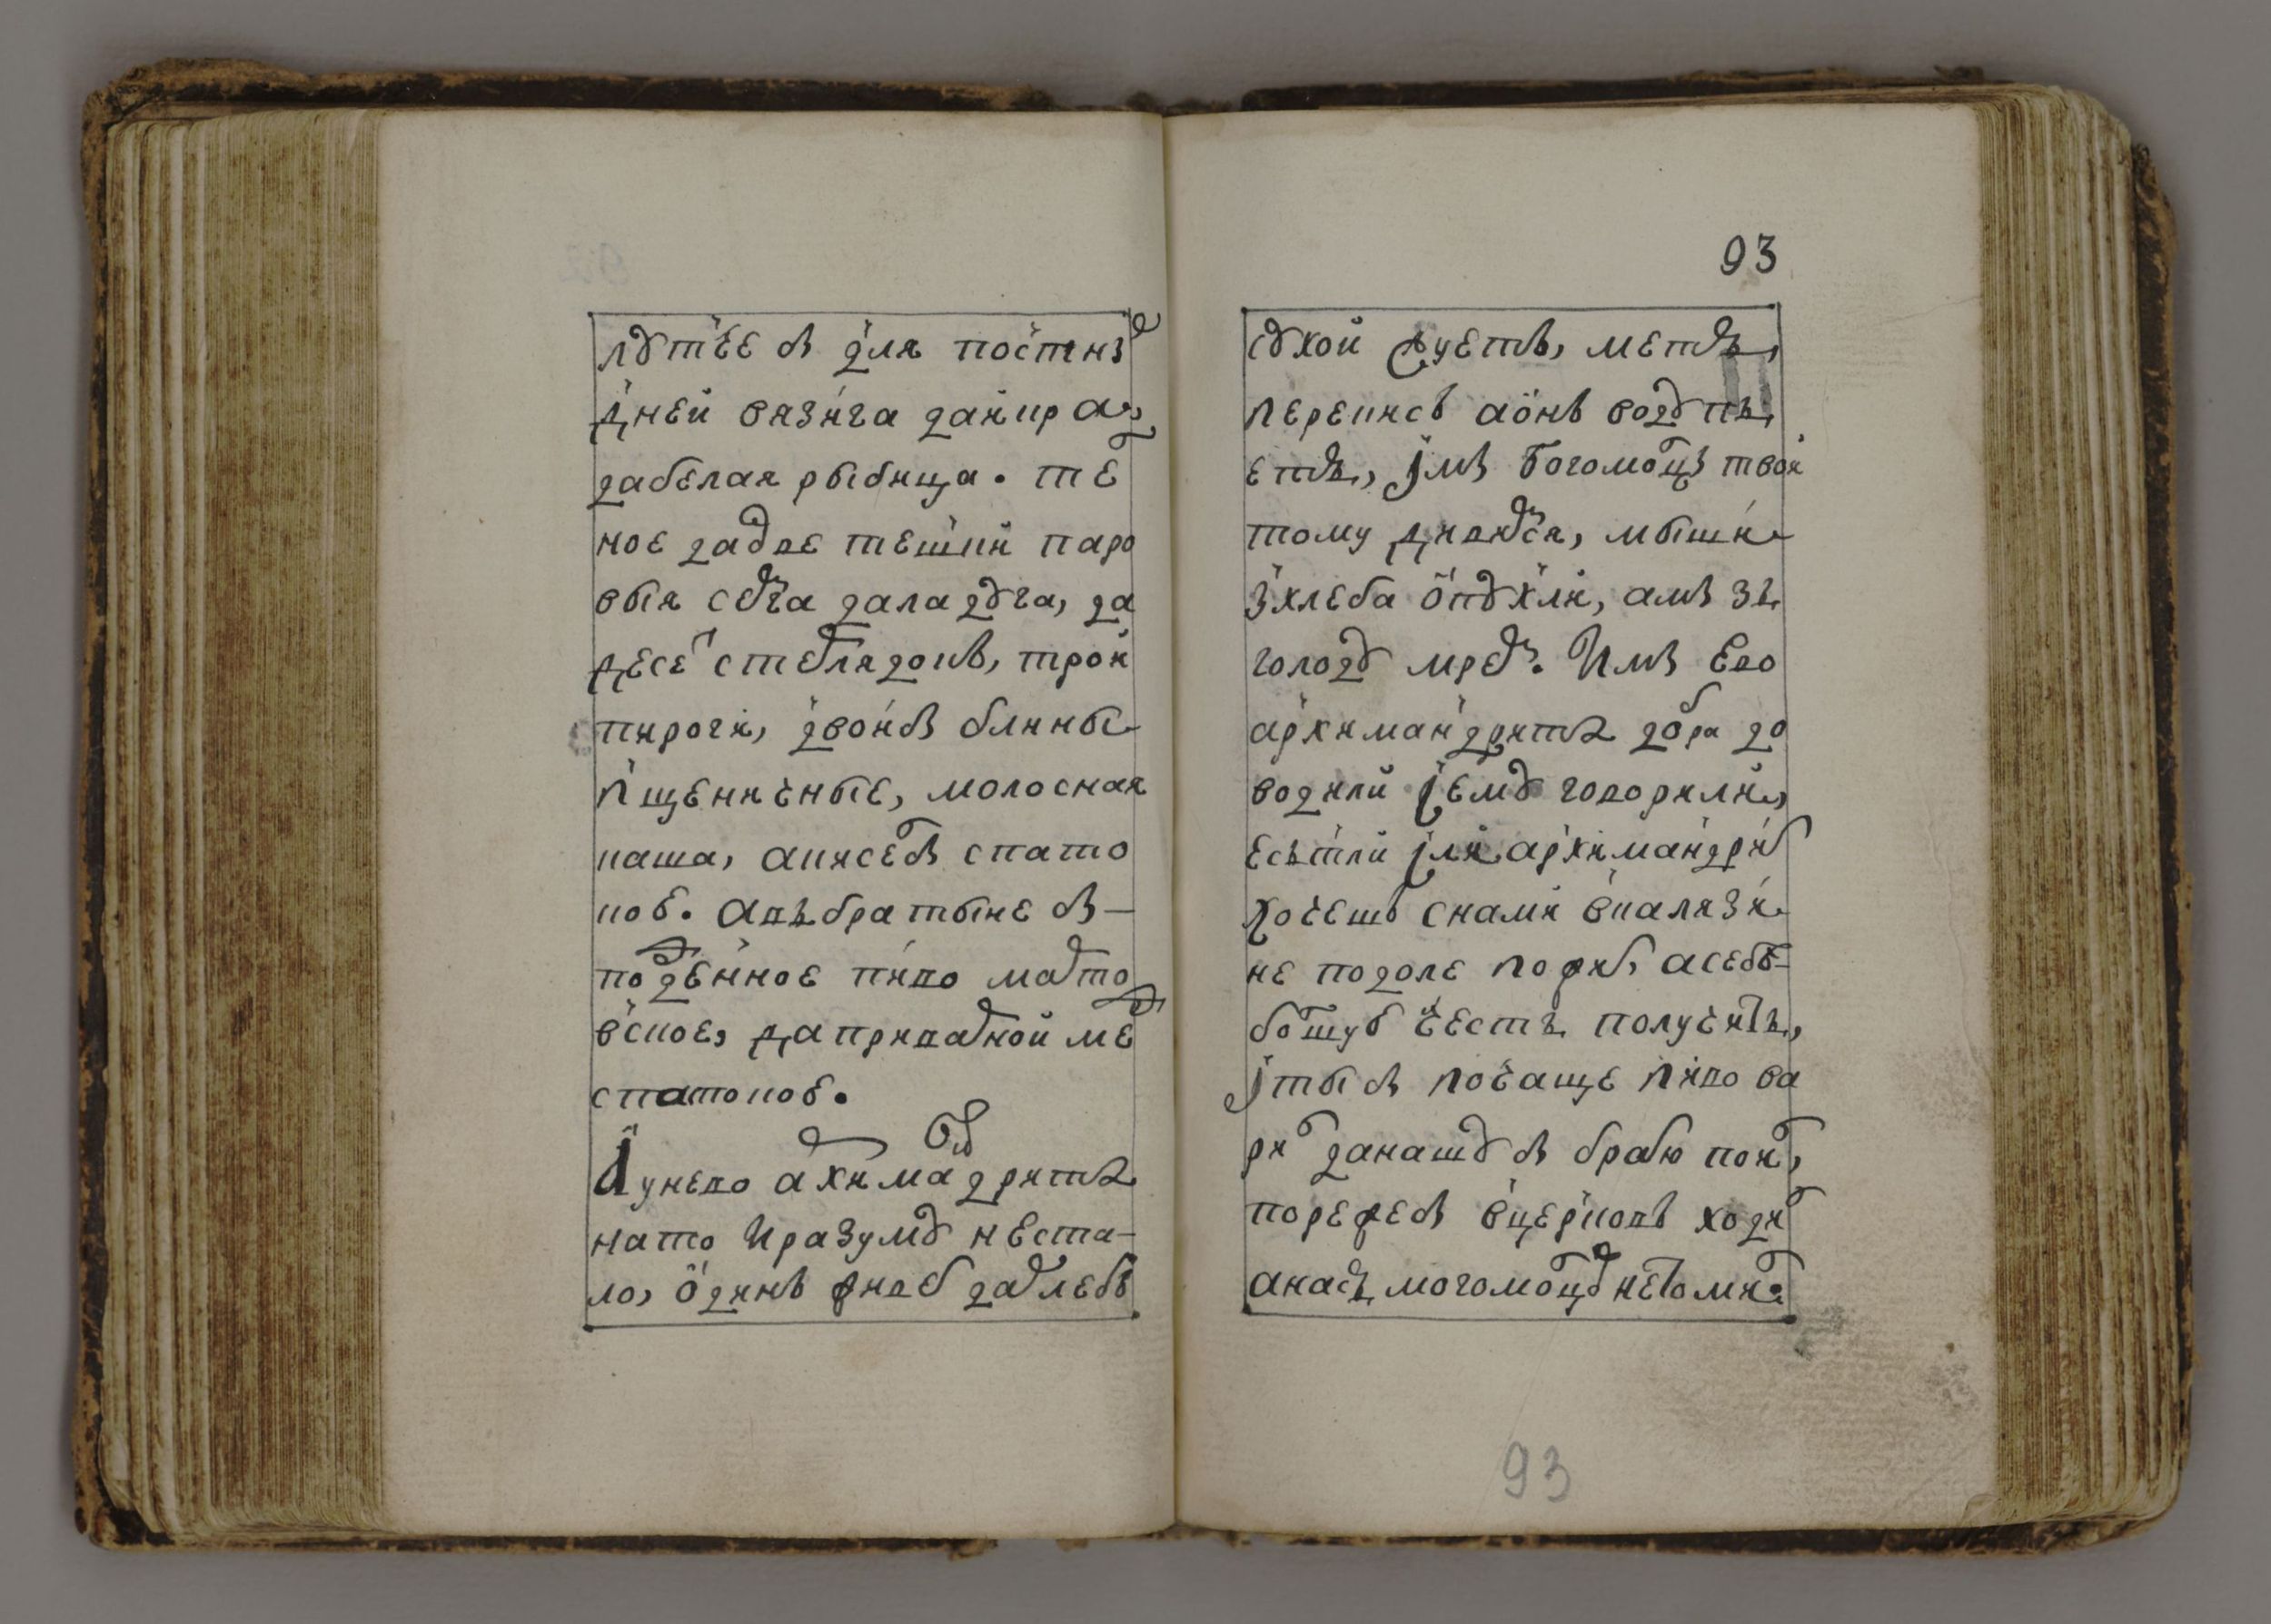 лутчее б для постны
дней вязига да икра
да белая рыбица. те
ное да две тешки паро
выя суга да ладуга, да
десе стеблядокъ, трои
пироги, двои б блины
пшеничные, молосная
каша, а кисе б с пато
кою. а въ братыне б
подденное пиво марто
вское, да приварной ме
с патокою.
А у нево архимадрита
на то и разуму не ста-
ло, один живе да хлебъ
93
сухой жуетъ, медъ,
перекисъ а онъ воду пь
етъ, и мы богомолцы твои
тому дивимся, мыши и
з хлеба опухли, а мы зъ
голоду мрем. И мы ево
архимандрита добра до
водили и ему говорили,
есть ли или архимандри
хочешь с нами в калязи
не подоле пожи, а себе
болшую честь получить,
и ты б почаще пиво ва
ри да нашу б братю пои,
пореже б в церковь ходи
а насъ богомолцо не томи.
93